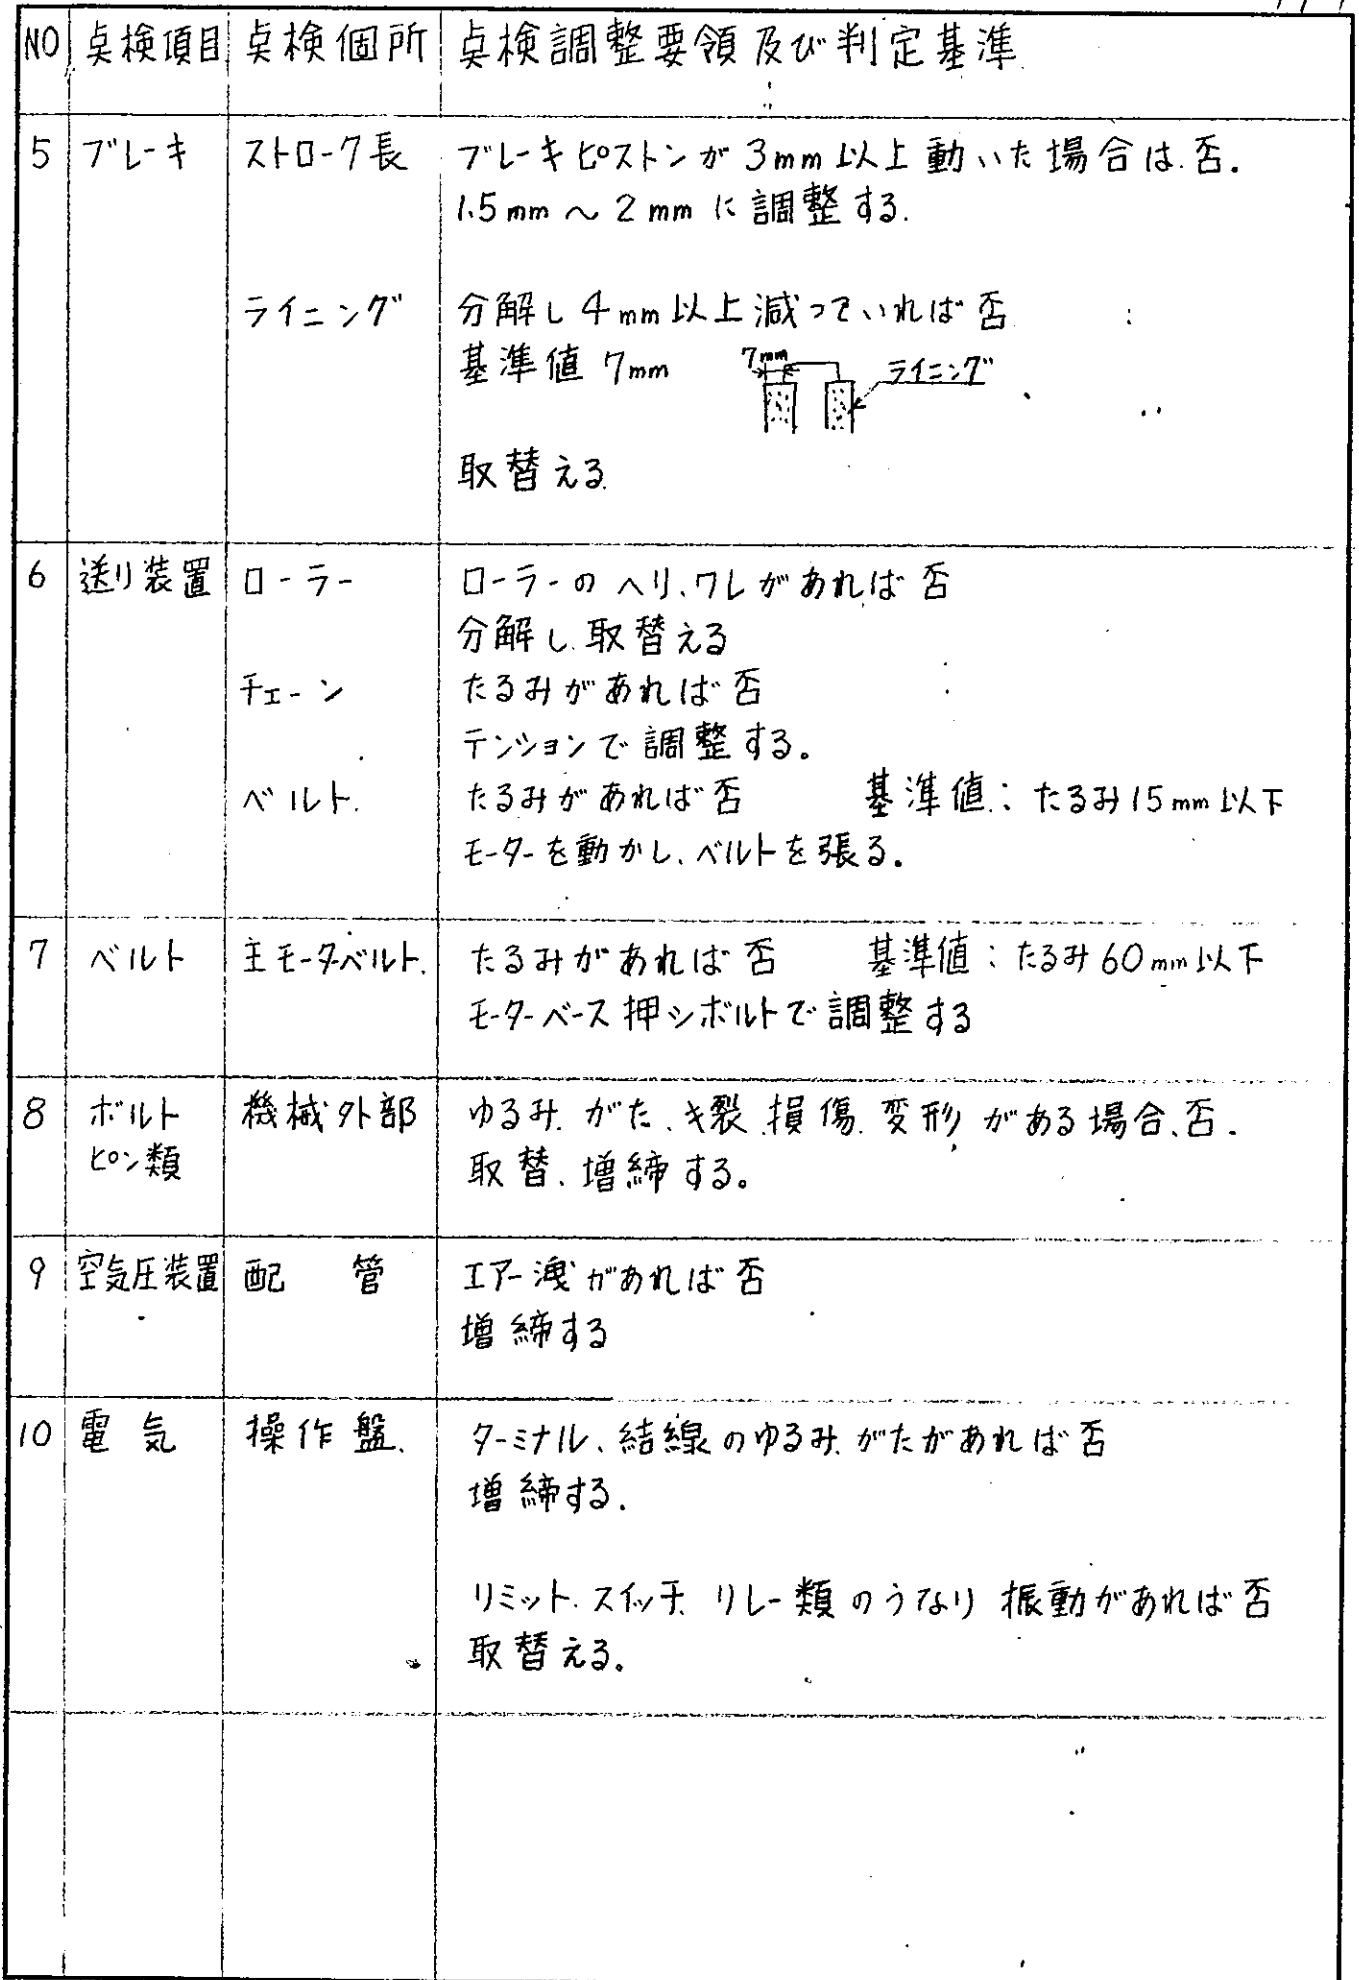 NO 点検項目 点検個所 点検調整要領及び判定基準
5 ブレーキ ストローク長 ブレーキピストンが3mm以上動いた場合は否.
1.5mm～2mmに調整する.
ライニング 分解し4mm以上減っていれば否
基準値 7mm 7mm ライニング
取替える
6 送り装置 ローラー ローラーのヘリ、ワレがあれば否
分解し取替える
チェーン たるみがあれば否
テンションで調整する。
ベルト. たるみがあれば否 基準値:たるみ15mm以下
モーターを動かし、ベルトを張る.
7 ベルト 主モータベルト. たるみがあれば否 基準値:たるみ60mm以下
モーターベース押シボルトで調整する
8 ボルト 機械外部 ゆるみ.がた、キ裂.損傷.変形がある場合、否.
ピン類 取替、増締する。
9 空気圧装置 配管 エアー洩があれば否
増締する
10 電気 操作盤. ターミナル、結線のゆるみ.がたがあれば否
増締する.
リミット.スイッチ.リレー類のうなり 振動があれば否
取替える.